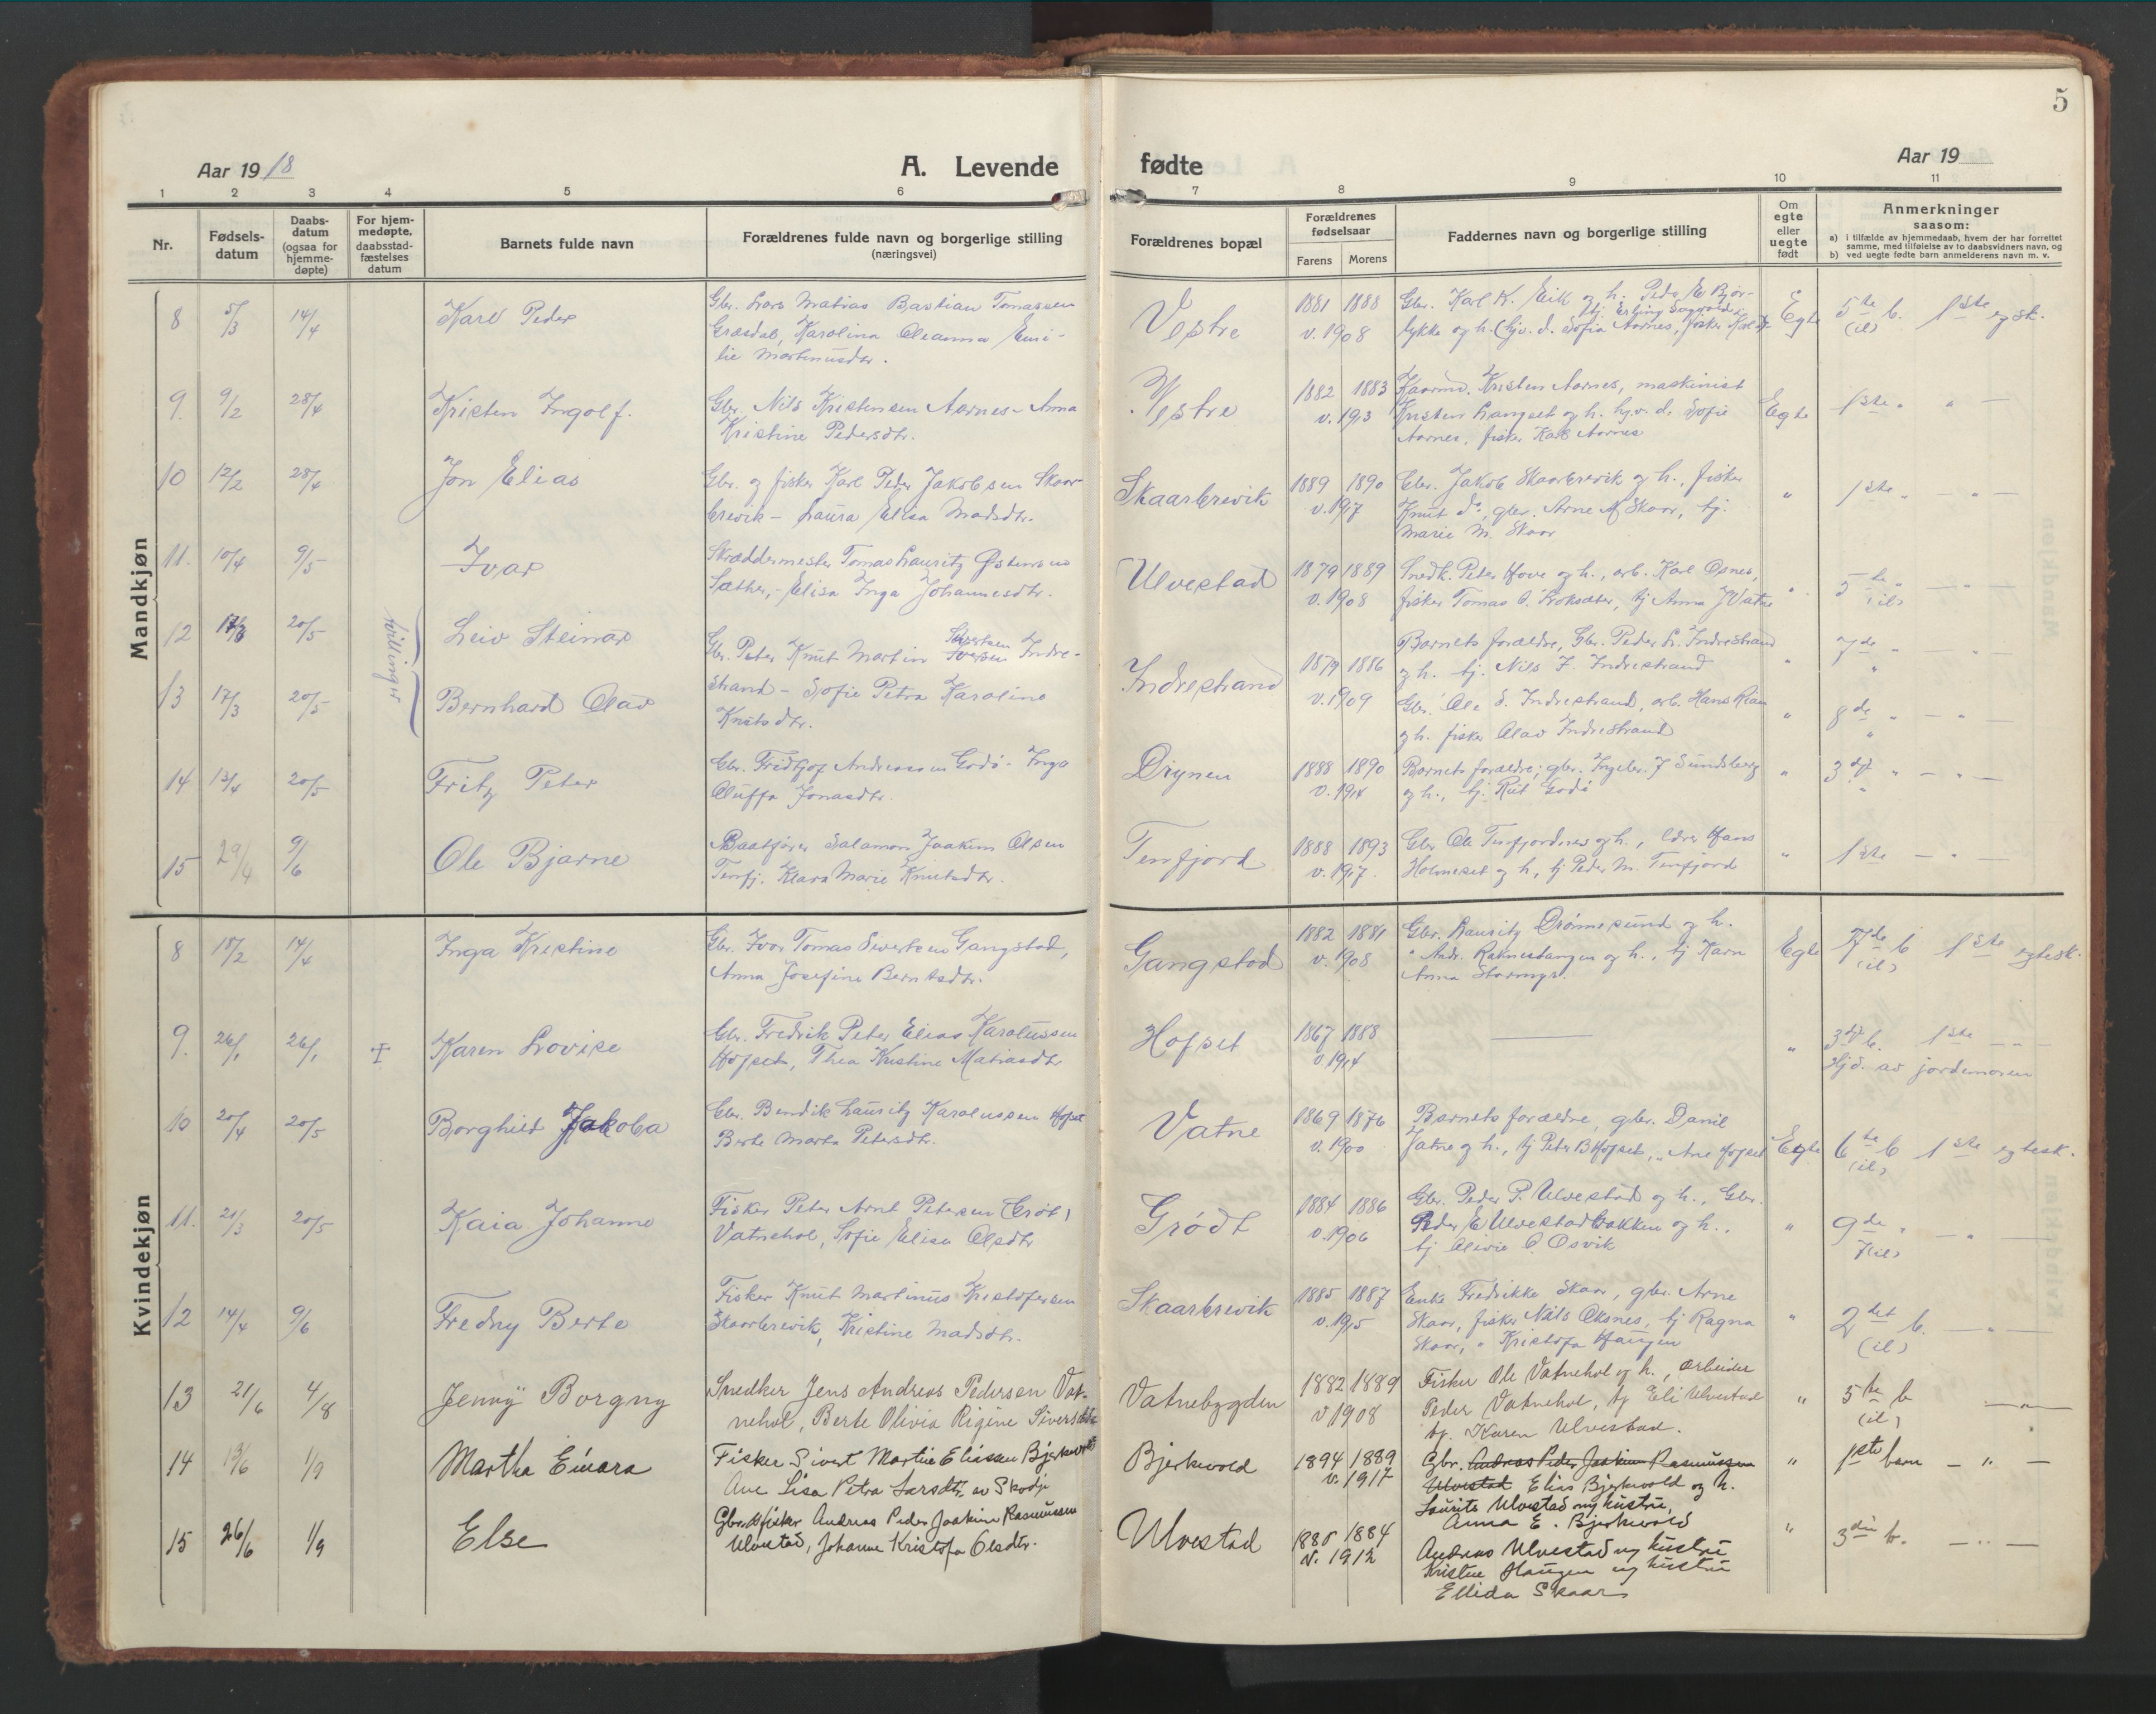 5
Aar 19 18
A. Levende
fødte
Aar 19
1 2 3 4 5 6 7 8 9 10 11
Nr.
Fødsels-
datum
Daabs-
datum
(ogsaa for
hjemme-
døpte)
For hjem-
medøpte.
daabsstad-
fæstelses
datum
Barnets fulde navn
Forældrenes fulde navn og borgerlige stilling
(næringsvei)
Forældrenes bopæl
Forældrenes
fødselsaar
Farens Morens
Faddernes navn og borgerlige stilling
Om
egte
eller
uegte
født
Anmerkninger
saasom:
a) i tilfælde av hjemmedaab, hvem der har forrettet
samme, med tilføielse av to daabsvidners navn, og
b) ved uegte fødte barn anmelderens navn m. v.
Mandkjøn
8 5/3 14/4 Karl Peder
Gbr. Lars Matias Bastian Tomassen
Græsdal, Karolina Oleanna Emi-
lie Martinusdtr.
Vestre
1881 1888
v. 1908
Gbr. Karl K. Eik og h. Peder E Bjør-
lykke og h. (hjv. d. Sofia Aarnes, fisker Karl
Egte
5te b. 1ste egsk.
(il)
9. 9/2 28/4 Kristen Ingolf.
Gbr. Nils Kristensen Aarnes - Anna
Kristine Pedersdtr.
Vestre
1882 1883
v. 1913
Kaarmd. Kristen Aarnes, maskinist
Kristen Langset og h. hjv. d. Sofie
Aarnes, fisker Karl Aarnes
Egte
1ste " " —
10 12/2 28/4 Jon Elias
Gbr. og fisker Karl Peder Jakobsen Skaar-
brevik - Laura Elisa Madsdtr.
Skaarbrevik
1889 1890
v. 1917
Gbr. Jakob Skaarbrevik og h., fisker
Knut do, gbr. Arne M Skaar, tj.
Marie M. Skaar
"
1ste " — " —
11. 10/4 9/5 Ivar
Skræddermester Tomas Lauritz Østensen
Sæther, - Elisa Inga Johannesdtr.
Ulvestad
1879 1889
v. 1908
Snedk. Peter Hove og h., arb. Karl Osnes,
fisker Tomas C. Kroksæter, tj Anna J Vatne
"
5te "
(il)
tvillinger
12 17/3 20/5 Leiv Steinar
Gbr. Peter Knut Martin Iversen Sivertsen Indre-
strand - Sofie Petra Karoline
Knutsdtr.
Indrestrand
1879 1886
v. 1909
Barnets forældre, Gbr. Peder L. Indrestrand
og h. tj. Nils F. Indrestrand
"
7de " — " —
13 17/3 20/5 Bernhard Olav
Gbr. Ole S. Indrestrand, arb. Hans Rian
og h. fisker Olav Indrestrand
"
8de " — " —
14 13/4 20/5 Fritz Peter
Gbr. Fridtjof Andreassen Godø - Inga
Oluffa Jonasdtr.
Drynen
1888 1890
v. 1914
Barnets forældre; gbr. Ingebr. J Sundsberg
og h., tj. Rut Godø
"
3dje " — " —
15 29/4 9/6 Ole Bjarne
Baatfører Salamon Joakim Olsen
Tenfj. Klara Marie Knutsdtr.
Tenfjord
1888 1893
v. 1917.
Gbr Ole Tenfjordnes og h., lærer Hans
Holmeset og h, tj Peder M. Tenfjord
"
1ste — " —
Kvindekjøn
8 18/2 14/4 Inga Kristine
Gbr. Ivar Tomas Sivertsen Gangstad,
Anna Josefine Berntsdtr.
Gangstad
1882 1881
v. 1908
Gbr. Lauritz Drønnesund og h.
" Andr. Ratnestangen og h., tj Karn
Anna
Egte
7de b 1ste egtesk.
(il)
9. 26/1 26/1 + Karen Lovise
Gbr. Fredrik Peter Elias Karolussen
Hofset, Thea Kristine Matiasdtr
Hofset
1867 1888
v. 1914
—
"
3dje b. 1ste — " —
Hjd. av jordemoren
10 20/4 20/5 Borghild Jakoba
Gbr. Bendik Lauritz Karolussen Hofset
Berte Marta Petersdtr.
Vatne
1869 1876
v. 1900
Barnets forældre, gbr. Daniel
Vatne og h., tj Peter B Hofset, " Ane Hofset
Egte
6te b 1ste egtesk.
(il)
11. 21/3 20/5 Kaia Johanne
Fisker Peter Arnt Petersen (Grøt)
Vatnehol, Sofie Elisa Olsdtr
Grødt
1884 1886
v. 1906
Gbr. Peder P. Ulvestad og h., Gbr.
Peder E Ulvestadbakken og h.,
tj Olivie O. Osvik
"
9de " — "
7(il)
12 14/4 9/6 Fredny Berte
Fisker Knut Martinus Kristofersen
Skaarbrevik, Kristine Madsdtr.
Skaarbrevik
1885 1887
v. 1915
Enke Fredrikke Skaar, gbr. Arne
Skaar, fisker Nils Oksnes, tj Ragna
Skaar, " Kristofa Haugen
"
2det b. — " —
(il)
13 21/6 4/8 Jenny Borgny
Snedker Jens Andreas Pedersen Vat-
nehol, Berte Olivia Rigine Siversdtr
Vatnebygden
1882 1889
v 1908
Fisker Ole Vatnehol og h., arbeider
Peder Vatnehol, tj Eli Ulvestad
tj. Karen Ulvestad.
"
5te b — " —
(il)
14 13/6 1/9 Martha Einara
Fisker Sivert Martin Eliassen Bjerkvold
Ane Lisa Petra Larsdtr. av Skodje
Bjerkvold
1894 1889
v. 1917
Gbr. Andreas Peder Joakim Rasmussen
Ulvestad Elias Bjerkvold og h.
Laurits Ulvestad og hustru,
Anna E. Bjerkvold
"
1ste barn — " —
15 26/6 1/9 Else
Gbr. & fisker Andreas Peder Joakim Rasmussen
Ulvestad, Johanne Kristofa Olsdtr.
Ulvestad
1885 1884
v. 1912
Andreas Ulvestad og hustru
Kristine Haugen og hustru
Ellida Skaar
"
3die b. — " —